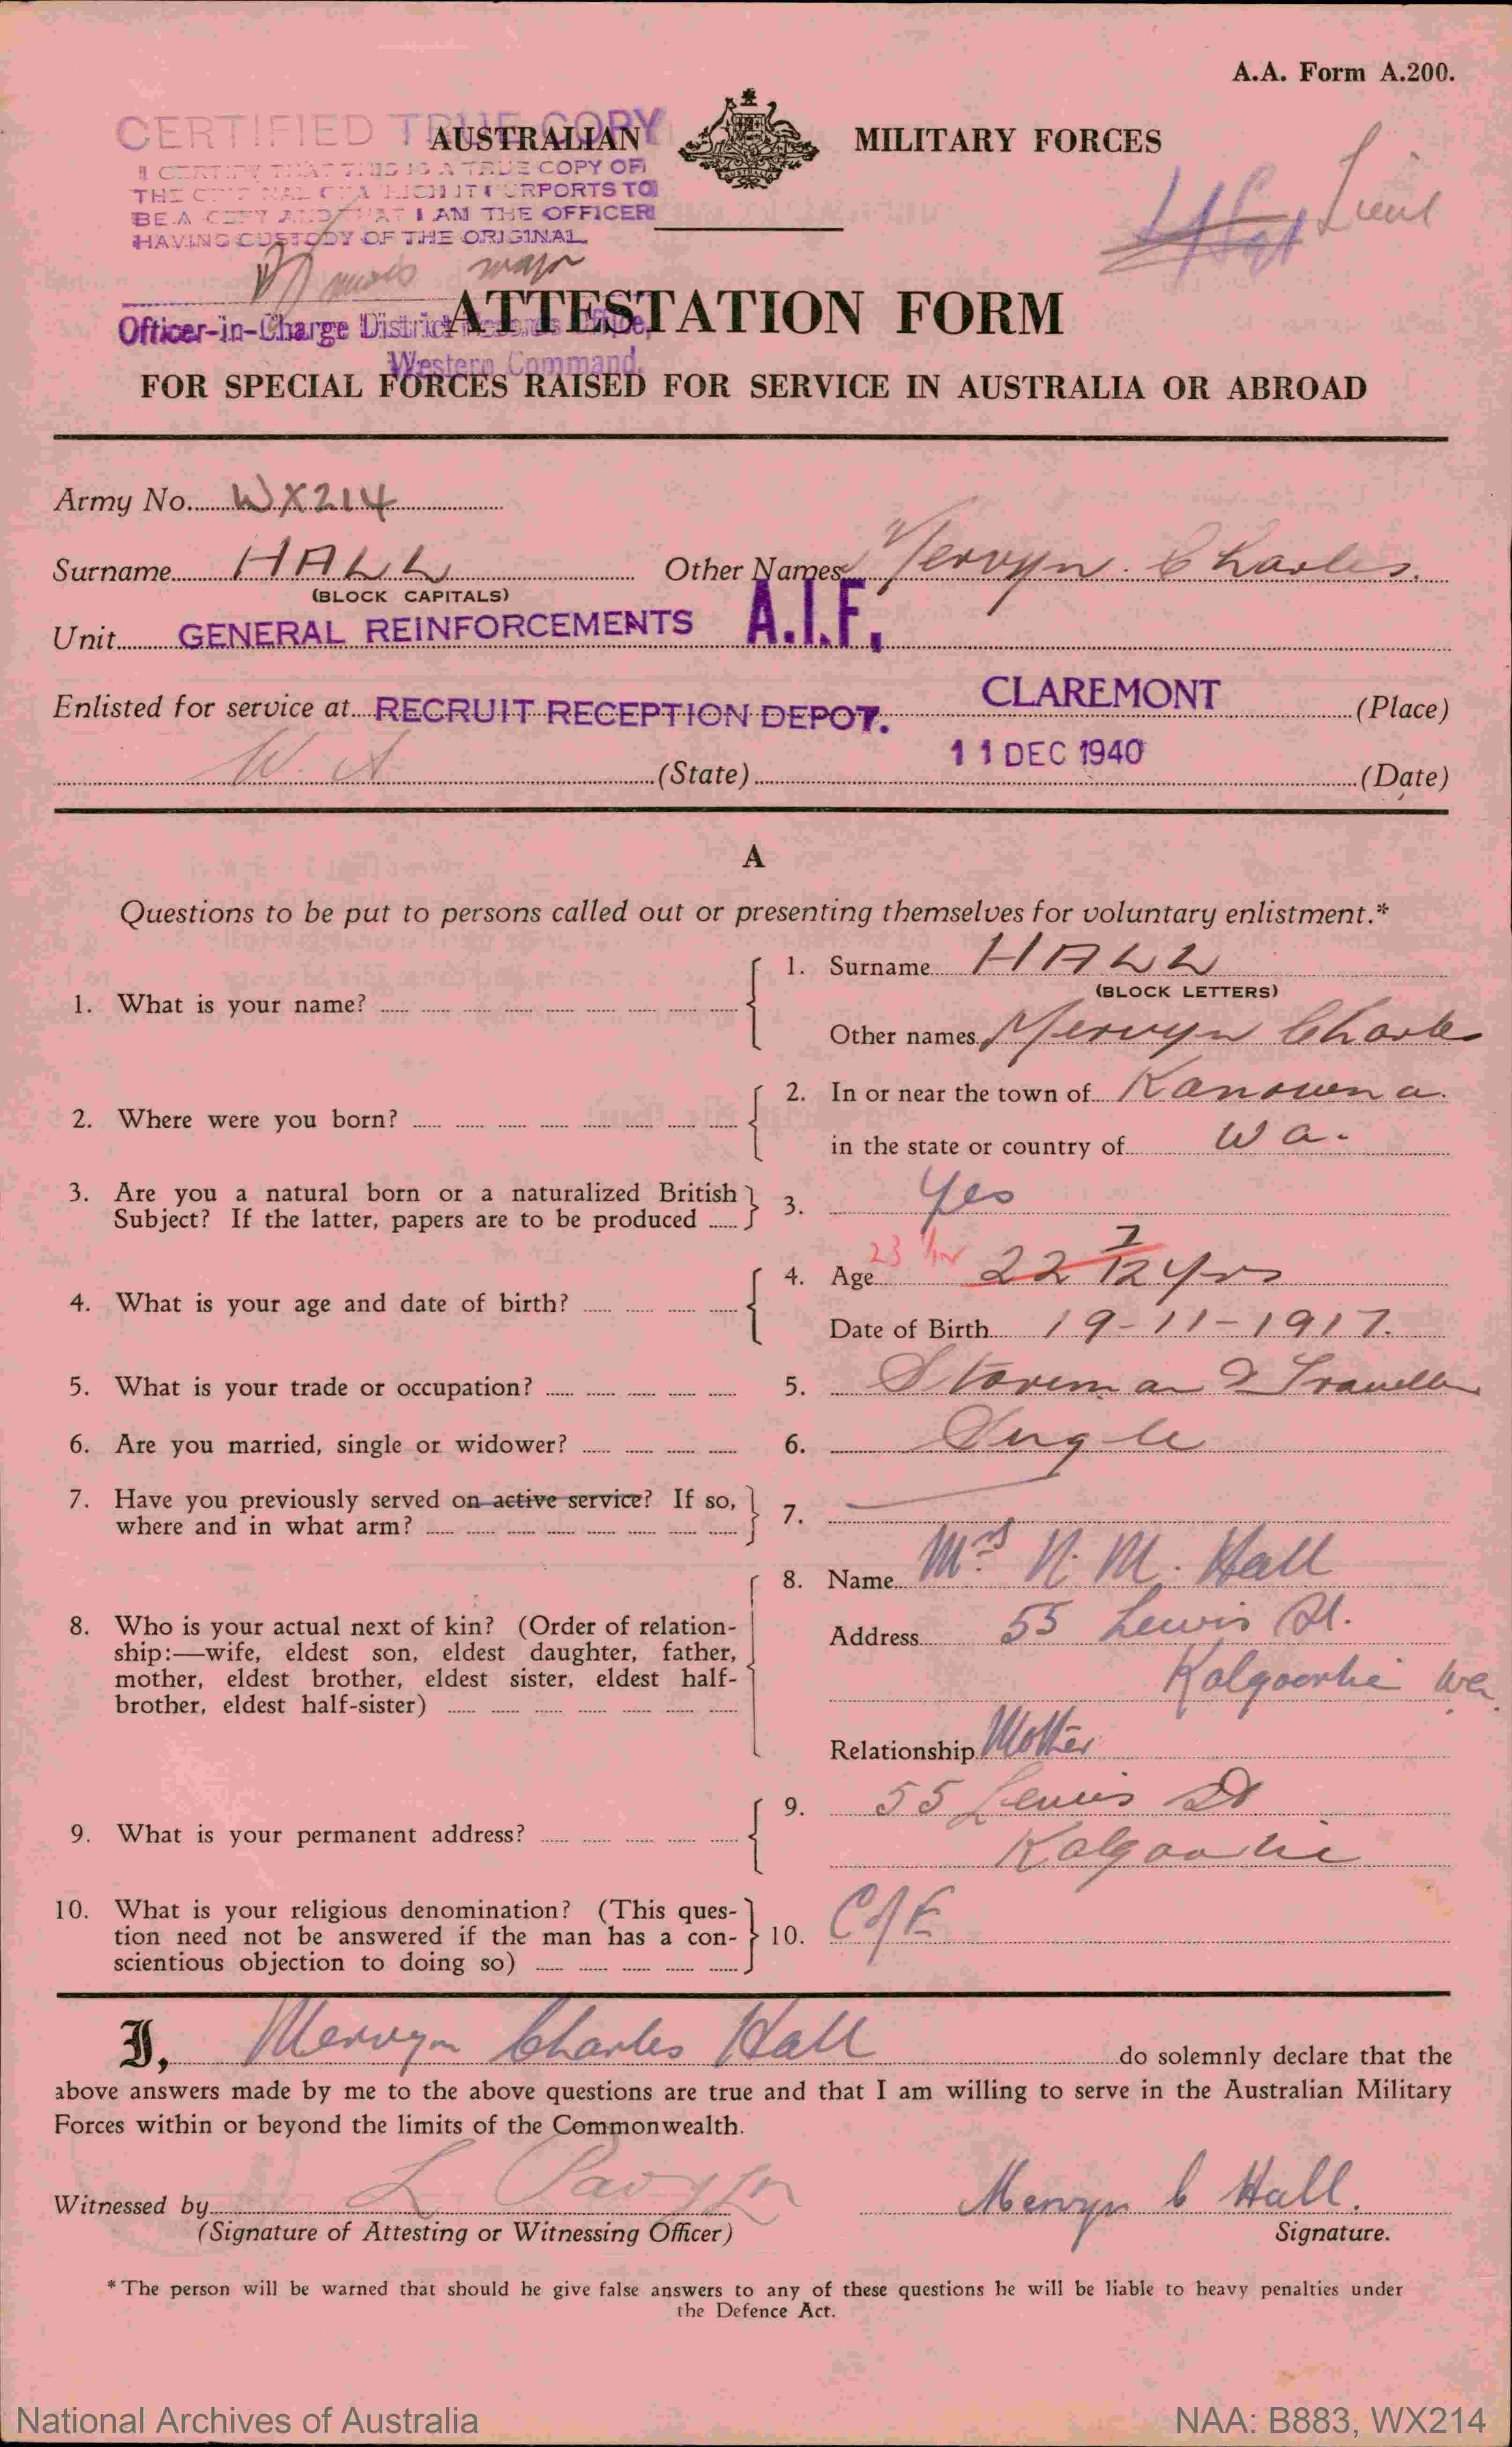 A.A. Form A.200.
CERTIFIED TRUE COPY
AUSTRALIAN MILITARY FORCES
I CERTIFY THAT THIS IS A TRUE COPY OF
THE ORIGINAL OR A WHICH IT PURPORTS TO
BE A COPY AND THAT I AM THE OFFICER
HAVING CUSTODY OF THE ORIGINAL
L/Sgt Lieut
major
ATTESTATION FORM
Officer-in-Charge District Records Office,
Western Command.
FOR SPECIAL FORCES RAISED FOR SERVICE IN AUSTRALIA OR ABROAD
Army No. WX214
Surname HALL Other Names Mervyn. Charles.
(BLOCK CAPITALS)
Unit GENERAL REINFORCEMENTS A.I.F.
Enlisted for service at RECRUIT RECEPTION DEPOT. CLAREMONT (Place)
W. A (State) 11 DEC 1940 (Date)
A
Questions to be put to persons called out or presenting themselves for voluntary enlistment.*
1. What is your name? 1. Surname HALL
(BLOCK LETTERS)
Other names Mervyn Charles
2. Where were you born? 2. In or near the town of Kanowna.
in the state or country of W a.
3. Are you a natural born or a naturalized British
Subject? If the latter, papers are to be produced 3. Yes
4. What is your age and date of birth? 4. Age 23 1/12 22 7/12 yrs
Date of Birth 19-11-1917.
5. What is your trade or occupation? 5. Storeman & Traveller
6. Are you married, single or widower? 6. Single
7. Have you previously served on active service? If so,
where and in what arm? 7.
8. Who is your actual next of kin? (Order of relation-
ship:—wife, eldest son, eldest daughter, father,
mother, eldest brother, eldest sister, eldest half-
brother, eldest half-sister)
8. Name Mrs N. M. Hall
Address 55 Lewis St.
Kalgoorlie Wa.
Relationship Mother
9. What is your permanent address? 9. 55 Lewis St
Kalgoorlie
10. What is your religious denomination? (This ques-
tion need not be answered if the man has a con-
scientious objection to doing so) 10. C/E
I, Mervyn Charles Hall do solemnly declare that the
above answers made by me to the above questions are true and that I am willing to serve in the Australian Military
Forces within or beyond the limits of the Commonwealth.
Witnessed by L Mervyn C Hall.
(Signature of Attesting or Witnessing Officer) Signature.
*The person will be warned that should he give false answers to any of these questions he will be liable to heavy penalties under
the Defence Act.
National Archives of Australia NAA: B883, WX214